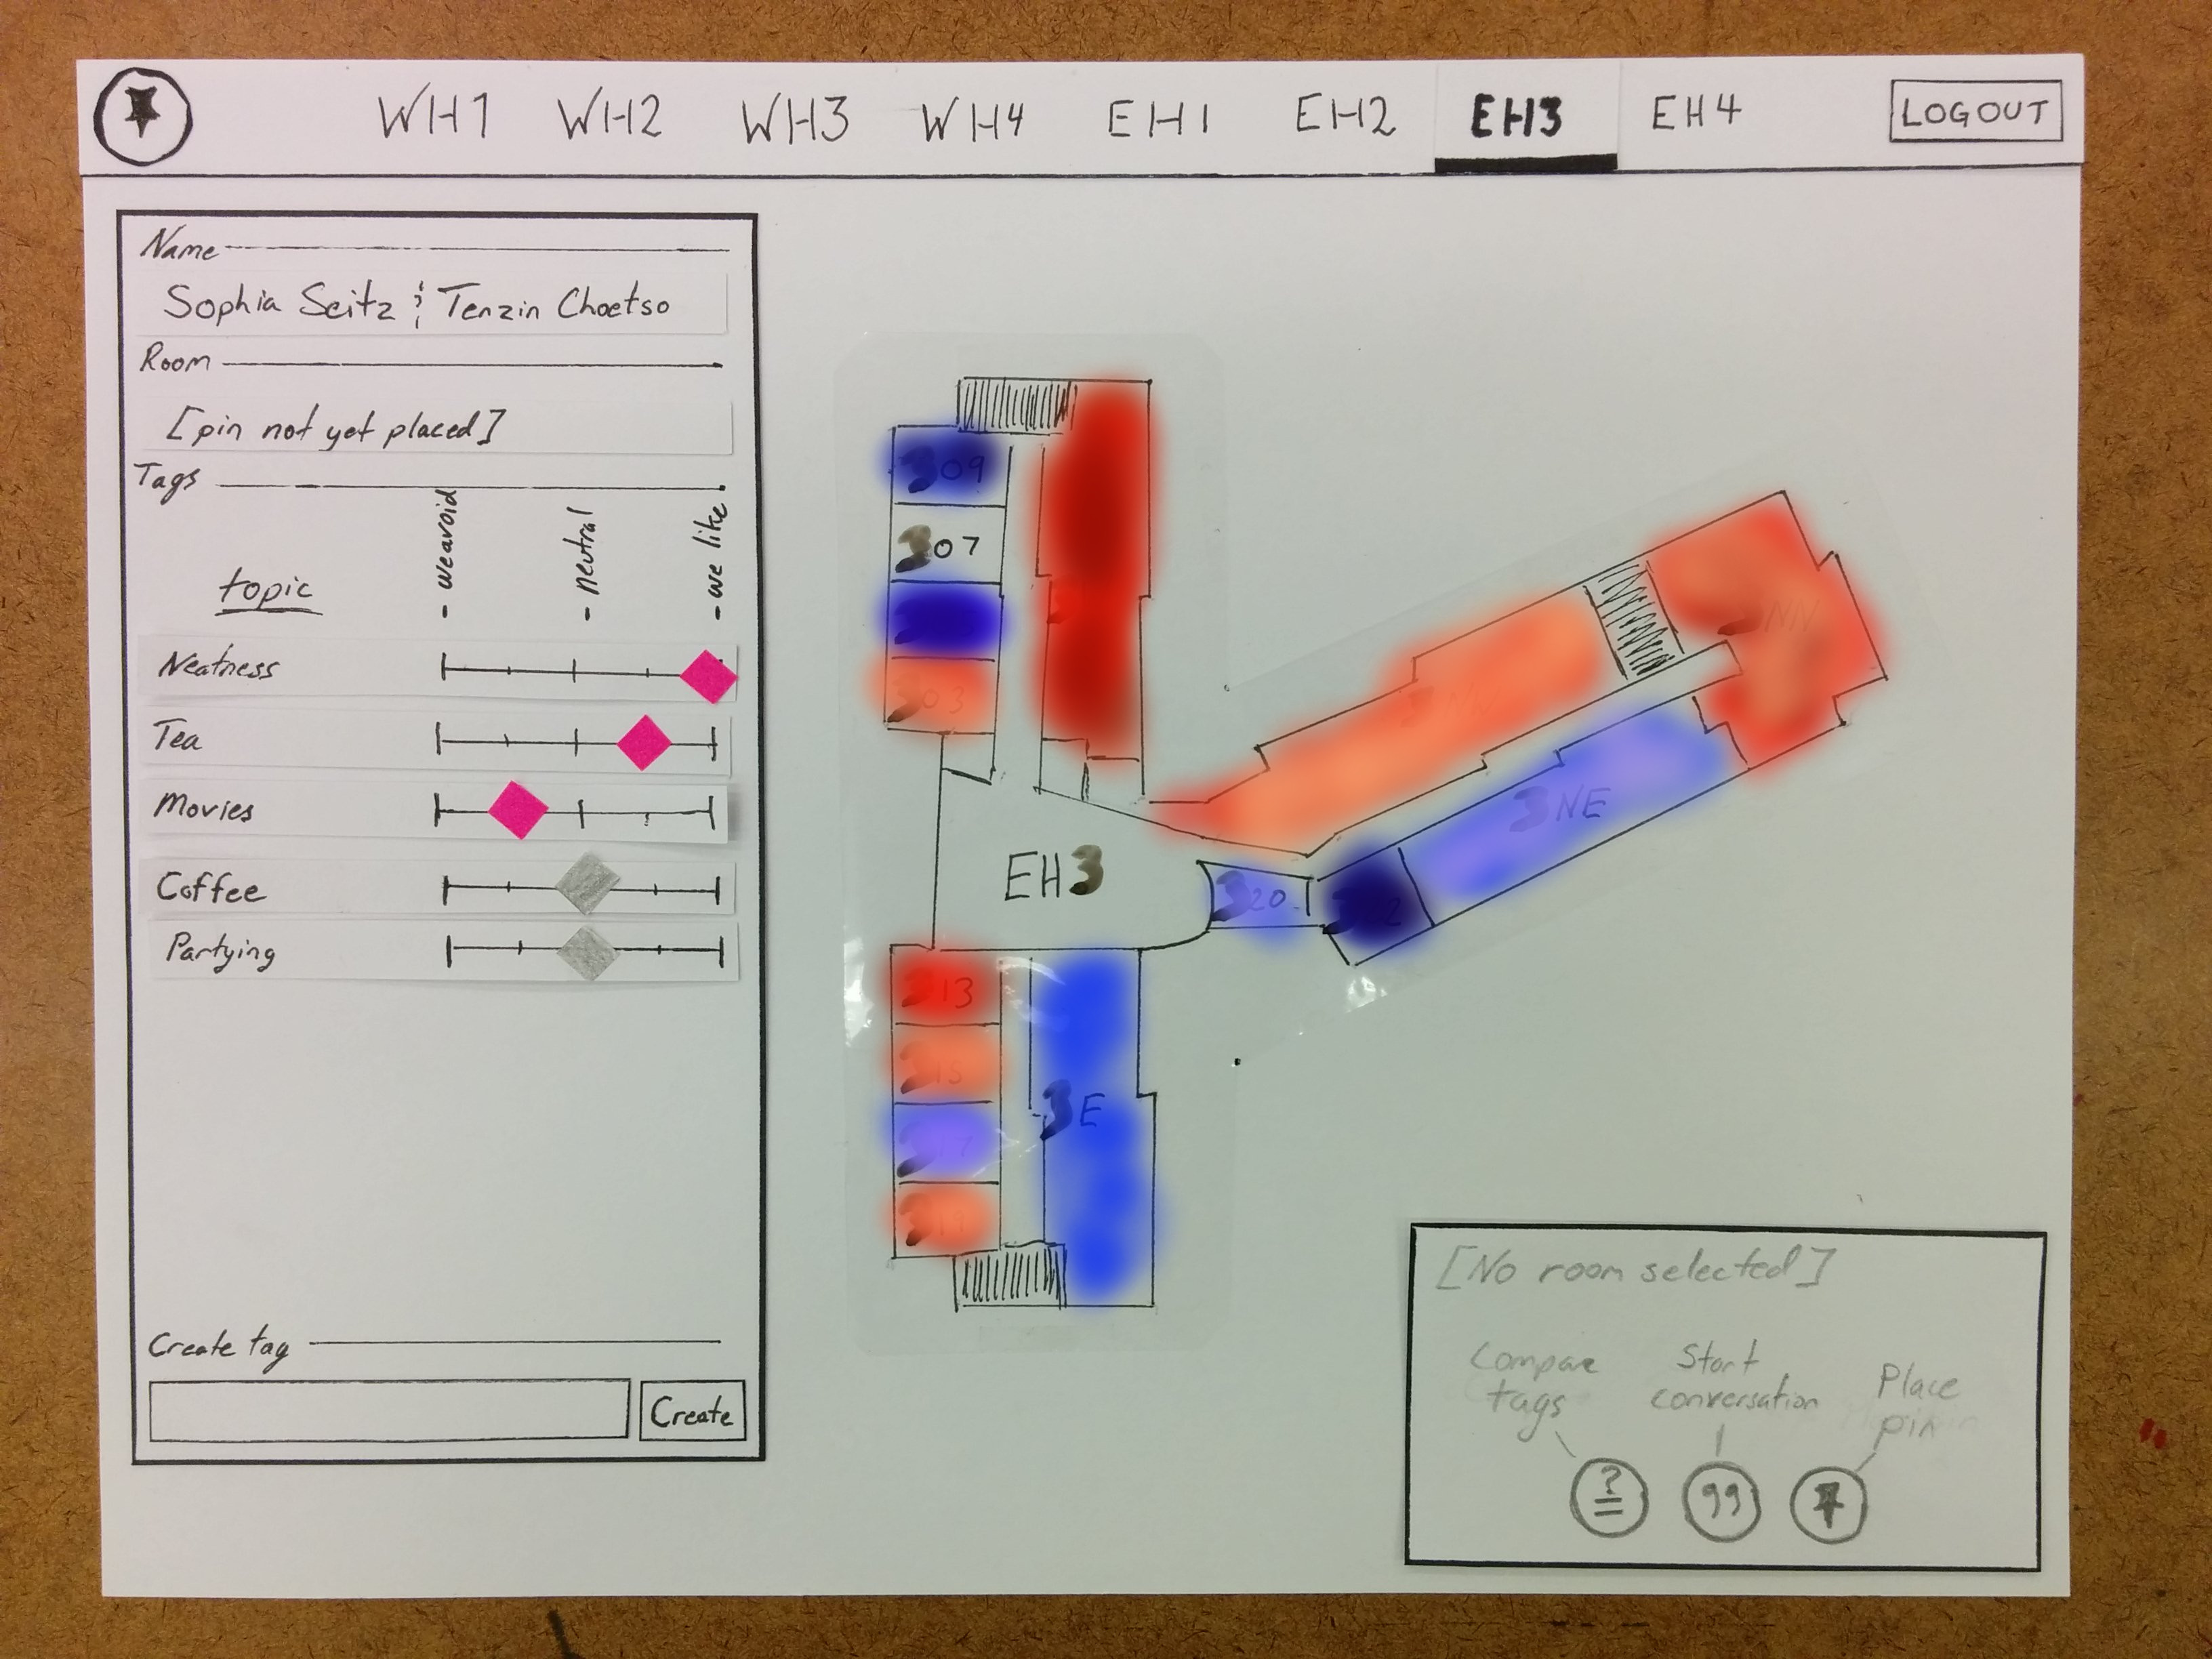 WH1 WH2 WH3 WH4 EH1 EH2 EH3 EH4 LOGOUT
Name
Sophia Seitz & Tenzin Choetso
Room
[pin not yet placed]
Tags
topic
- we avoid
- neutral
- we like
Neatness
Tea
Movies
Coffee
Partying
Create tag
Create
309
307
303
EH3
320
3NE
313
315
317
3E
319
[No room selected]
Compare tags
Start conversation
Place pin
?
=
99